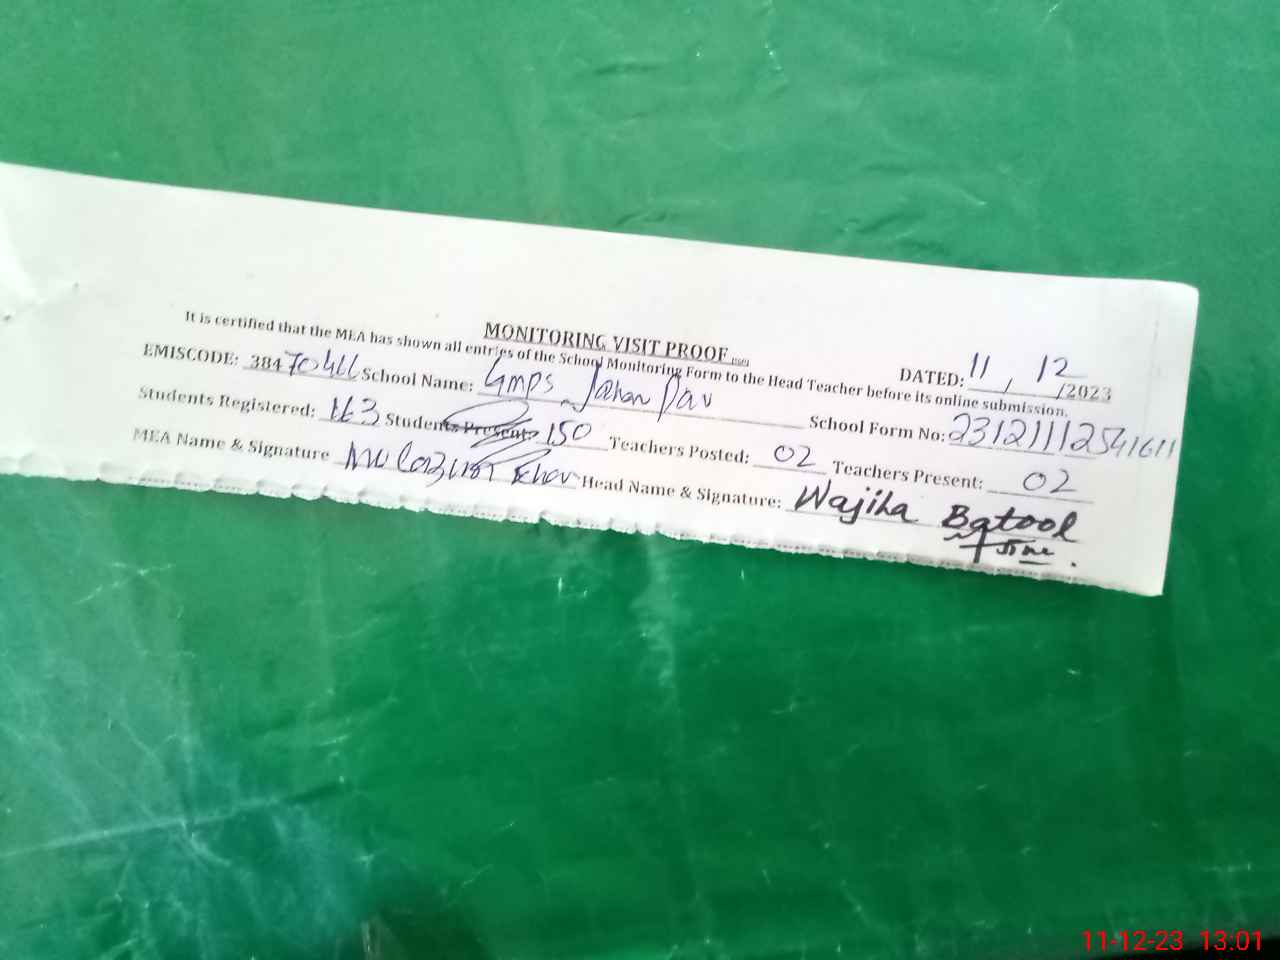 MONITORING VISIT PROOF
DATED: 11 / 12 /2023
It is certified that the MEA has shown all entries of the School Monitoring Form to the Head Teacher before its online submission.
EMISCODE: 384 School Name: Gmps School Form No:
Students Registered: 163 Students Present: 150 Teachers Posted: 02 Teachers Present: 02
MEA Name & Signature Head Name & Signature: Wajiha Batool
11-12-23 13:01